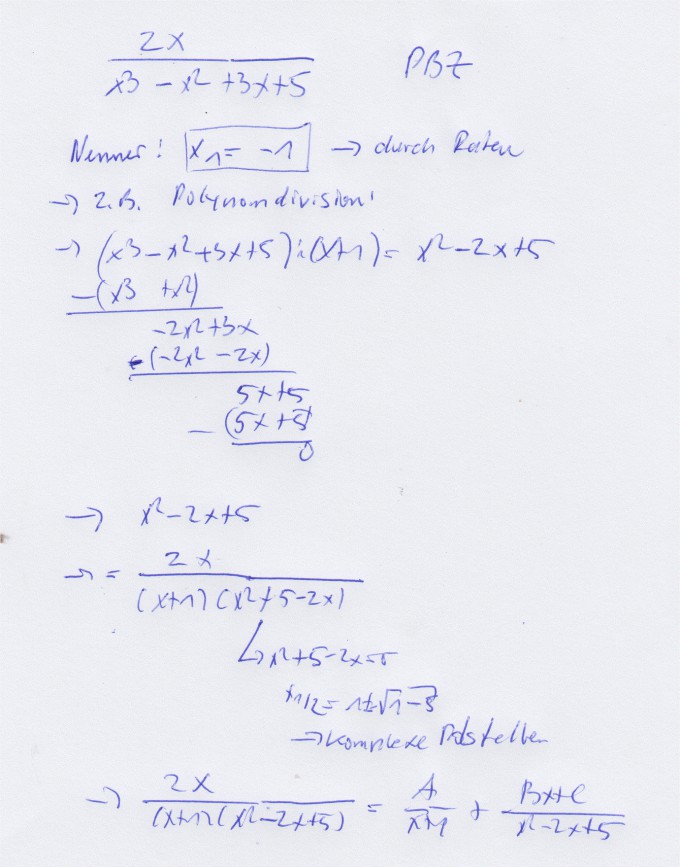 2x / (x³ - x² + 3x + 5)    PBZ
Nenner: x₁ = -1 → durch Raten
→ z.B. Polynomdivision:
→ (x³ - x² + 3x + 5) : (x+1) = x² - 2x + 5
-(x³ + x²)
-2x² + 3x
-(-2x² - 2x)
5x + 5
- (5x + 5)
0
→ x² - 2x + 5
→ = 2x / ((x+1)(x² + 5 - 2x))
↳ x² + 5 - 2x = 0
x₁/₂ = 1 ± √(1 - 5)
→ komplexe Polstellen
→ 2x / ((x+1)(x² - 2x + 5)) = A / (x+1) + (Bx + C) / (x² - 2x + 5)